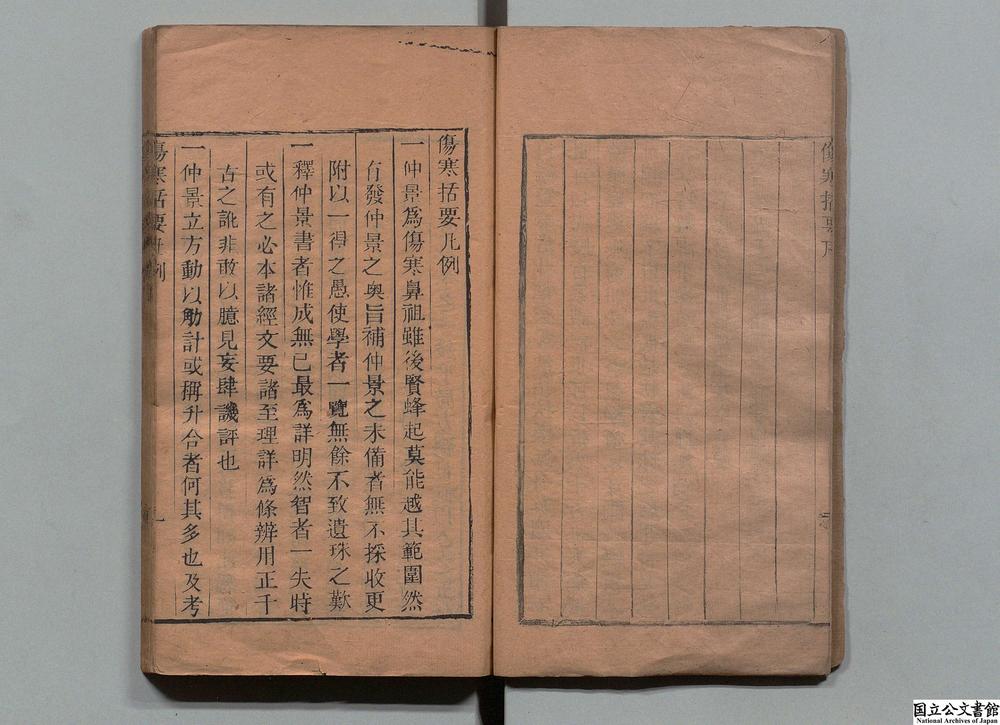 傷寒括要凡
傷寒括要凡例
一仲景爲傷寒鼻祖雖後賢蜂起莫能越其範圍然
有發仲景之奧旨補仲景之未備者無不採收更
附以一得之愚使學者一覽無餘不致遺珠之歎
一釋仲景書者惟成無已最爲詳明然智者一失時
或有之必本諸經文要諸至理詳爲條辨用正千
古之訛非敢以臆見妄肆譏評也
一仲景立方動以觔計或稱升合者何其多也及考
傷寒括要凡例
國立公文書館
National Archives of Japan